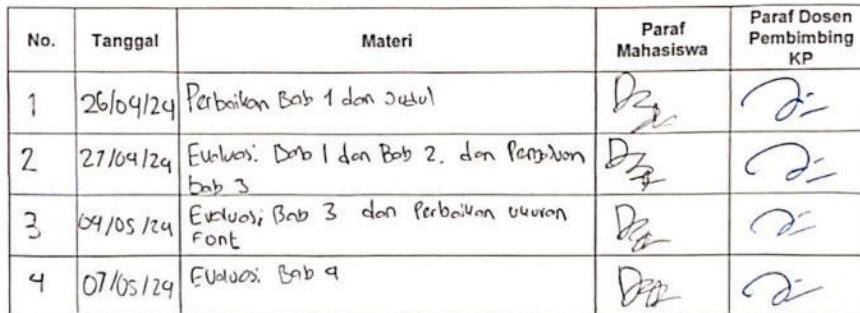 No. Tanggal Materi Paraf Mahasiswa Paraf Dosen Pembimbing KP
1 26/04/24 Perbaikan Bab 1 dan Judul
2 27/04/24 Evaluasi Bab 1 dan Bab 2, dan
bab 3
3 04/05/24 Evaluasi Bab 3 dan Perbaikan ukuran
Font
4 07/05/24 Evaluasi Bab 4